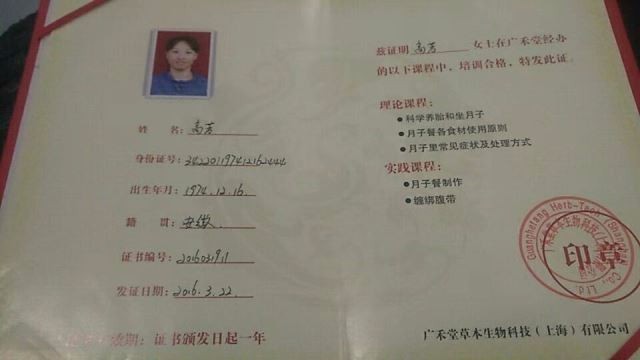 姓 名：高芳
身份证号：342201197412162444
出生年月：1974.12.16.
籍 贯：安徽
证书编号：2016031911
发证日期：2016.3.22.
效期：证书颁发日起一年
兹证明 高芳 女士在广禾堂经办
的以下课程中，培训合格，特发此证。
理论课程：
●科学养胎和坐月子
●月子餐各食材使用原则
●月子里常见症状及处理方式
实践课程：
●月子餐制作
●缠绑腹带
Guanghetang Herb-Tech
Co., Ltd.
印章
广禾堂草本生物科技（上海）有限公司